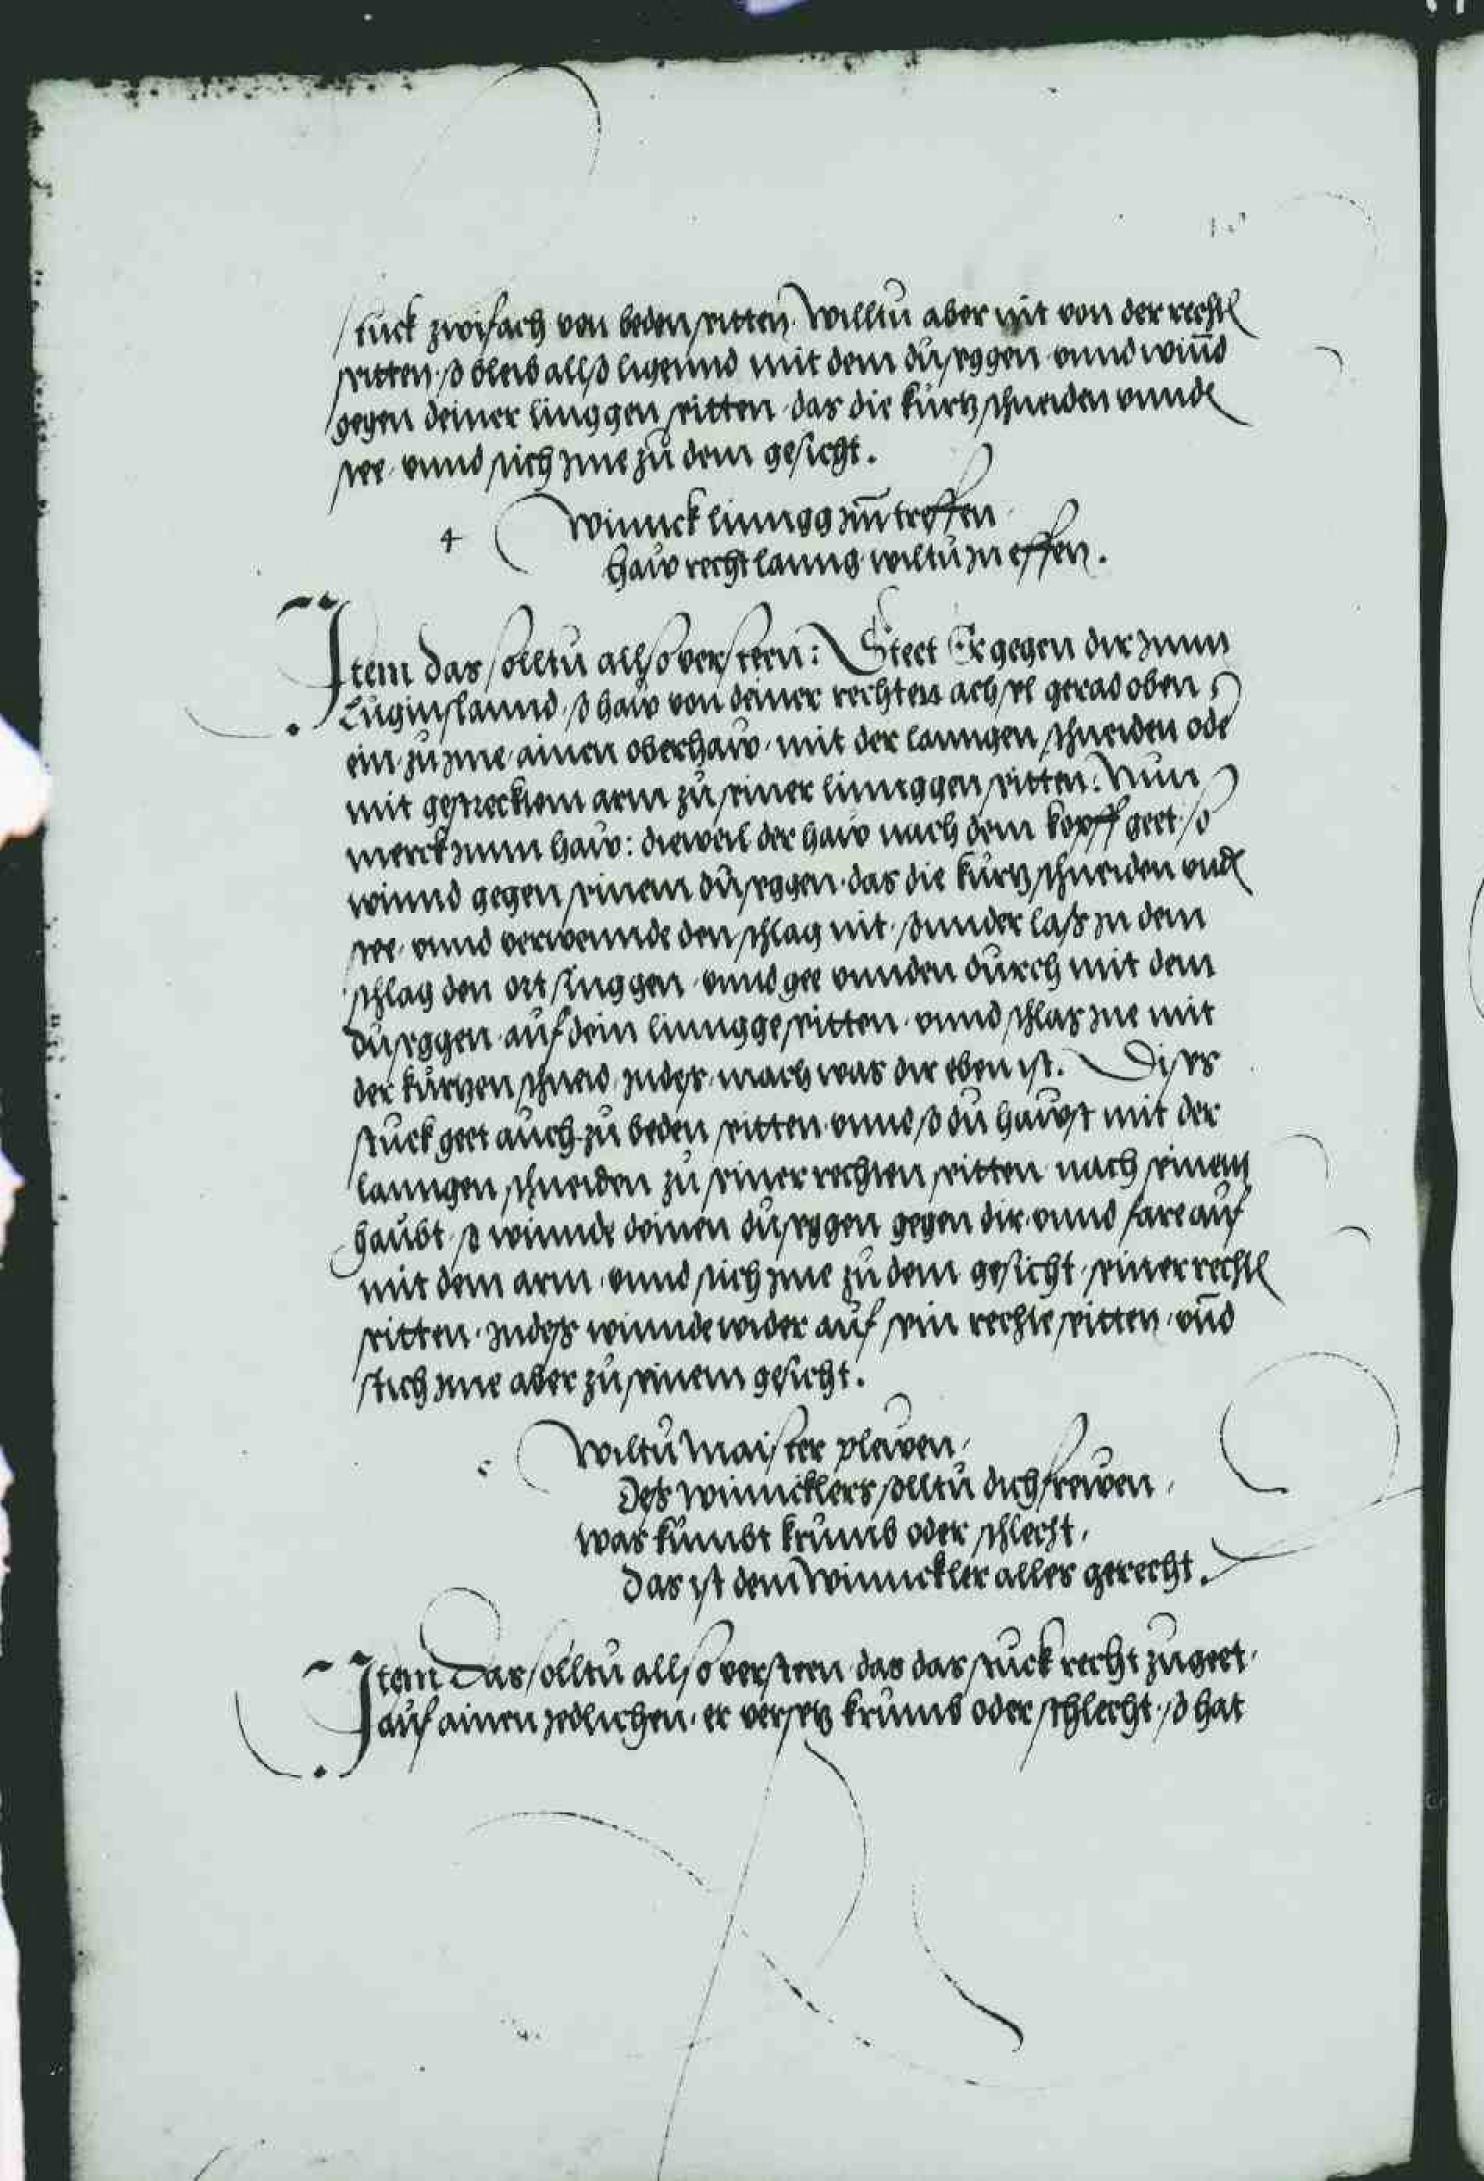 stuck zwifach von beden seitten. Willtu aber nit von der rechten
seitten, so bleib allso ligennd mit dem duseggen vnnd winnd
gegen deiner linggen seitten, das die kurtz schneiden vnnden
stee, vnnd stich jme zu dem gesicht.
4 Winnck linngg zum treffen
haw recht lanng wiltu jn effen.
Item das solltu allso versteen: Steet Er gegen dir jnnn
Luginslannd, so haw von deiner rechten achsel gerad oben
ein, zu jme, ainen oberhaw, mit der lanngen schneiden oder
mit gestrecktem arm zu seiner linnggen seitten: Nun
merck jnnn haw: dieweil der haw nach dem kopff geet, so
winnd gegen seinem dusggen, das die kurtz schneiden vnden
stee, vnnd verwennde den schlag nit, sunder lass zu dem
schlag den ort singgen, vnnd gee vnnden durch mit dem
dusggen, auf dein linngge seitten, vnnd schlag jne mit
der kurtzen schneid, jndess, mach was dir eben ist. Dises
stuck geet auch zu beden seitten, vnnd so du hawst mit der
lanngen schneiden zu seiner rechten seitten, nach seinem
haubt, so winnde deinen dusyggen gegen dir, vnnd fare auf
mit dem arm, vnnd stich jme zu dem gesicht, seiner rechten
seitten, jndess winnde wider auf sein rechte seitten, vnnd
stich jme aber zu seinem gesicht.
5 Wiltu Maister plewen,
Dess Winncklers solltu dich frewen,
was kumbt krumb oder schlecht,
das ist dem Winnckler alles gerecht.
Item Das solltu allso versteen, das das stuck recht zugeet,
auf ainen jedlichen, er versetz krumb oder schlecht, so hat